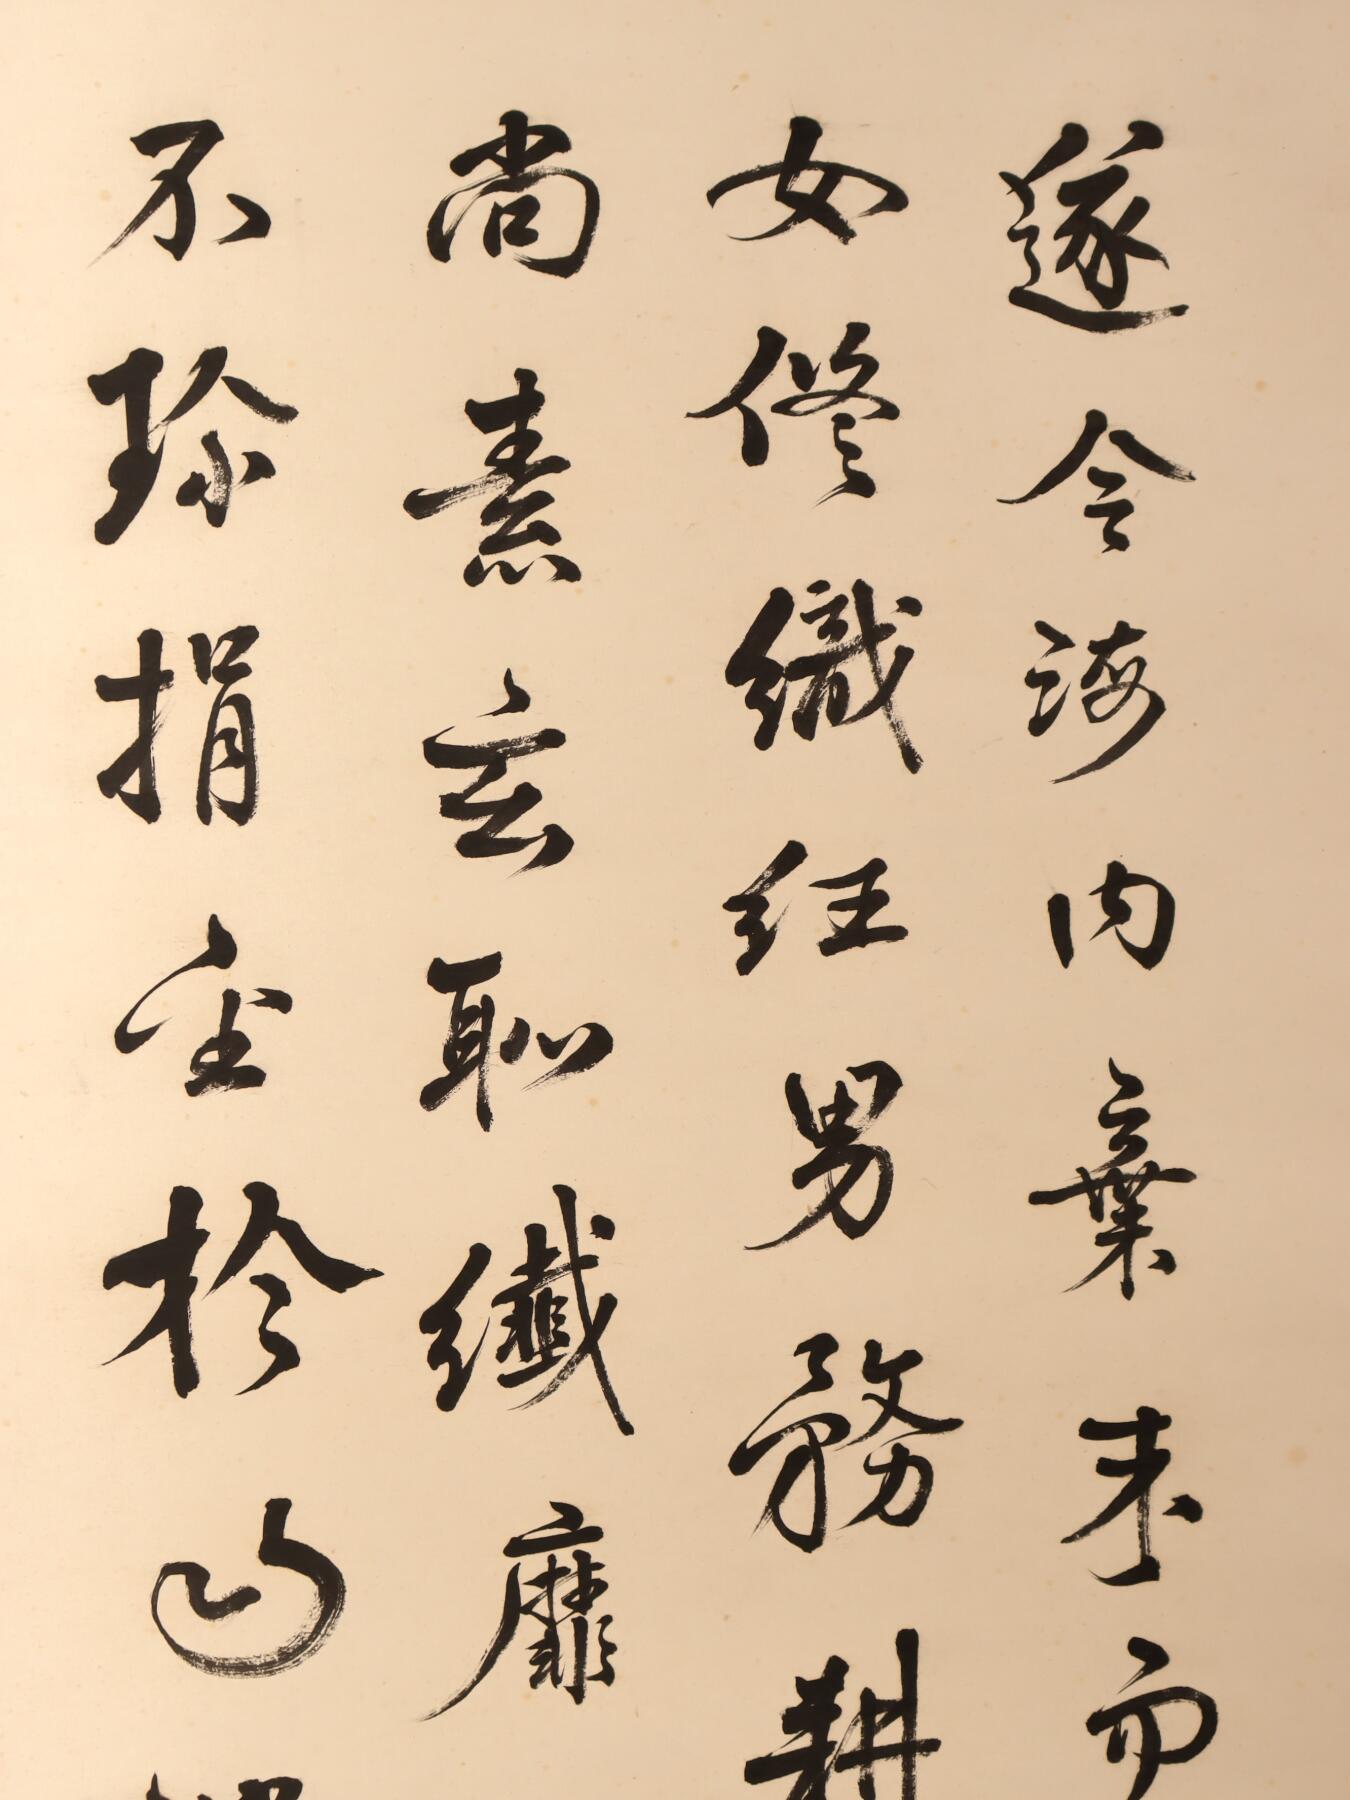 遂令海内棄末而
女修織紝男務耕
尚素玄恥纖靡
不珍捐金於山